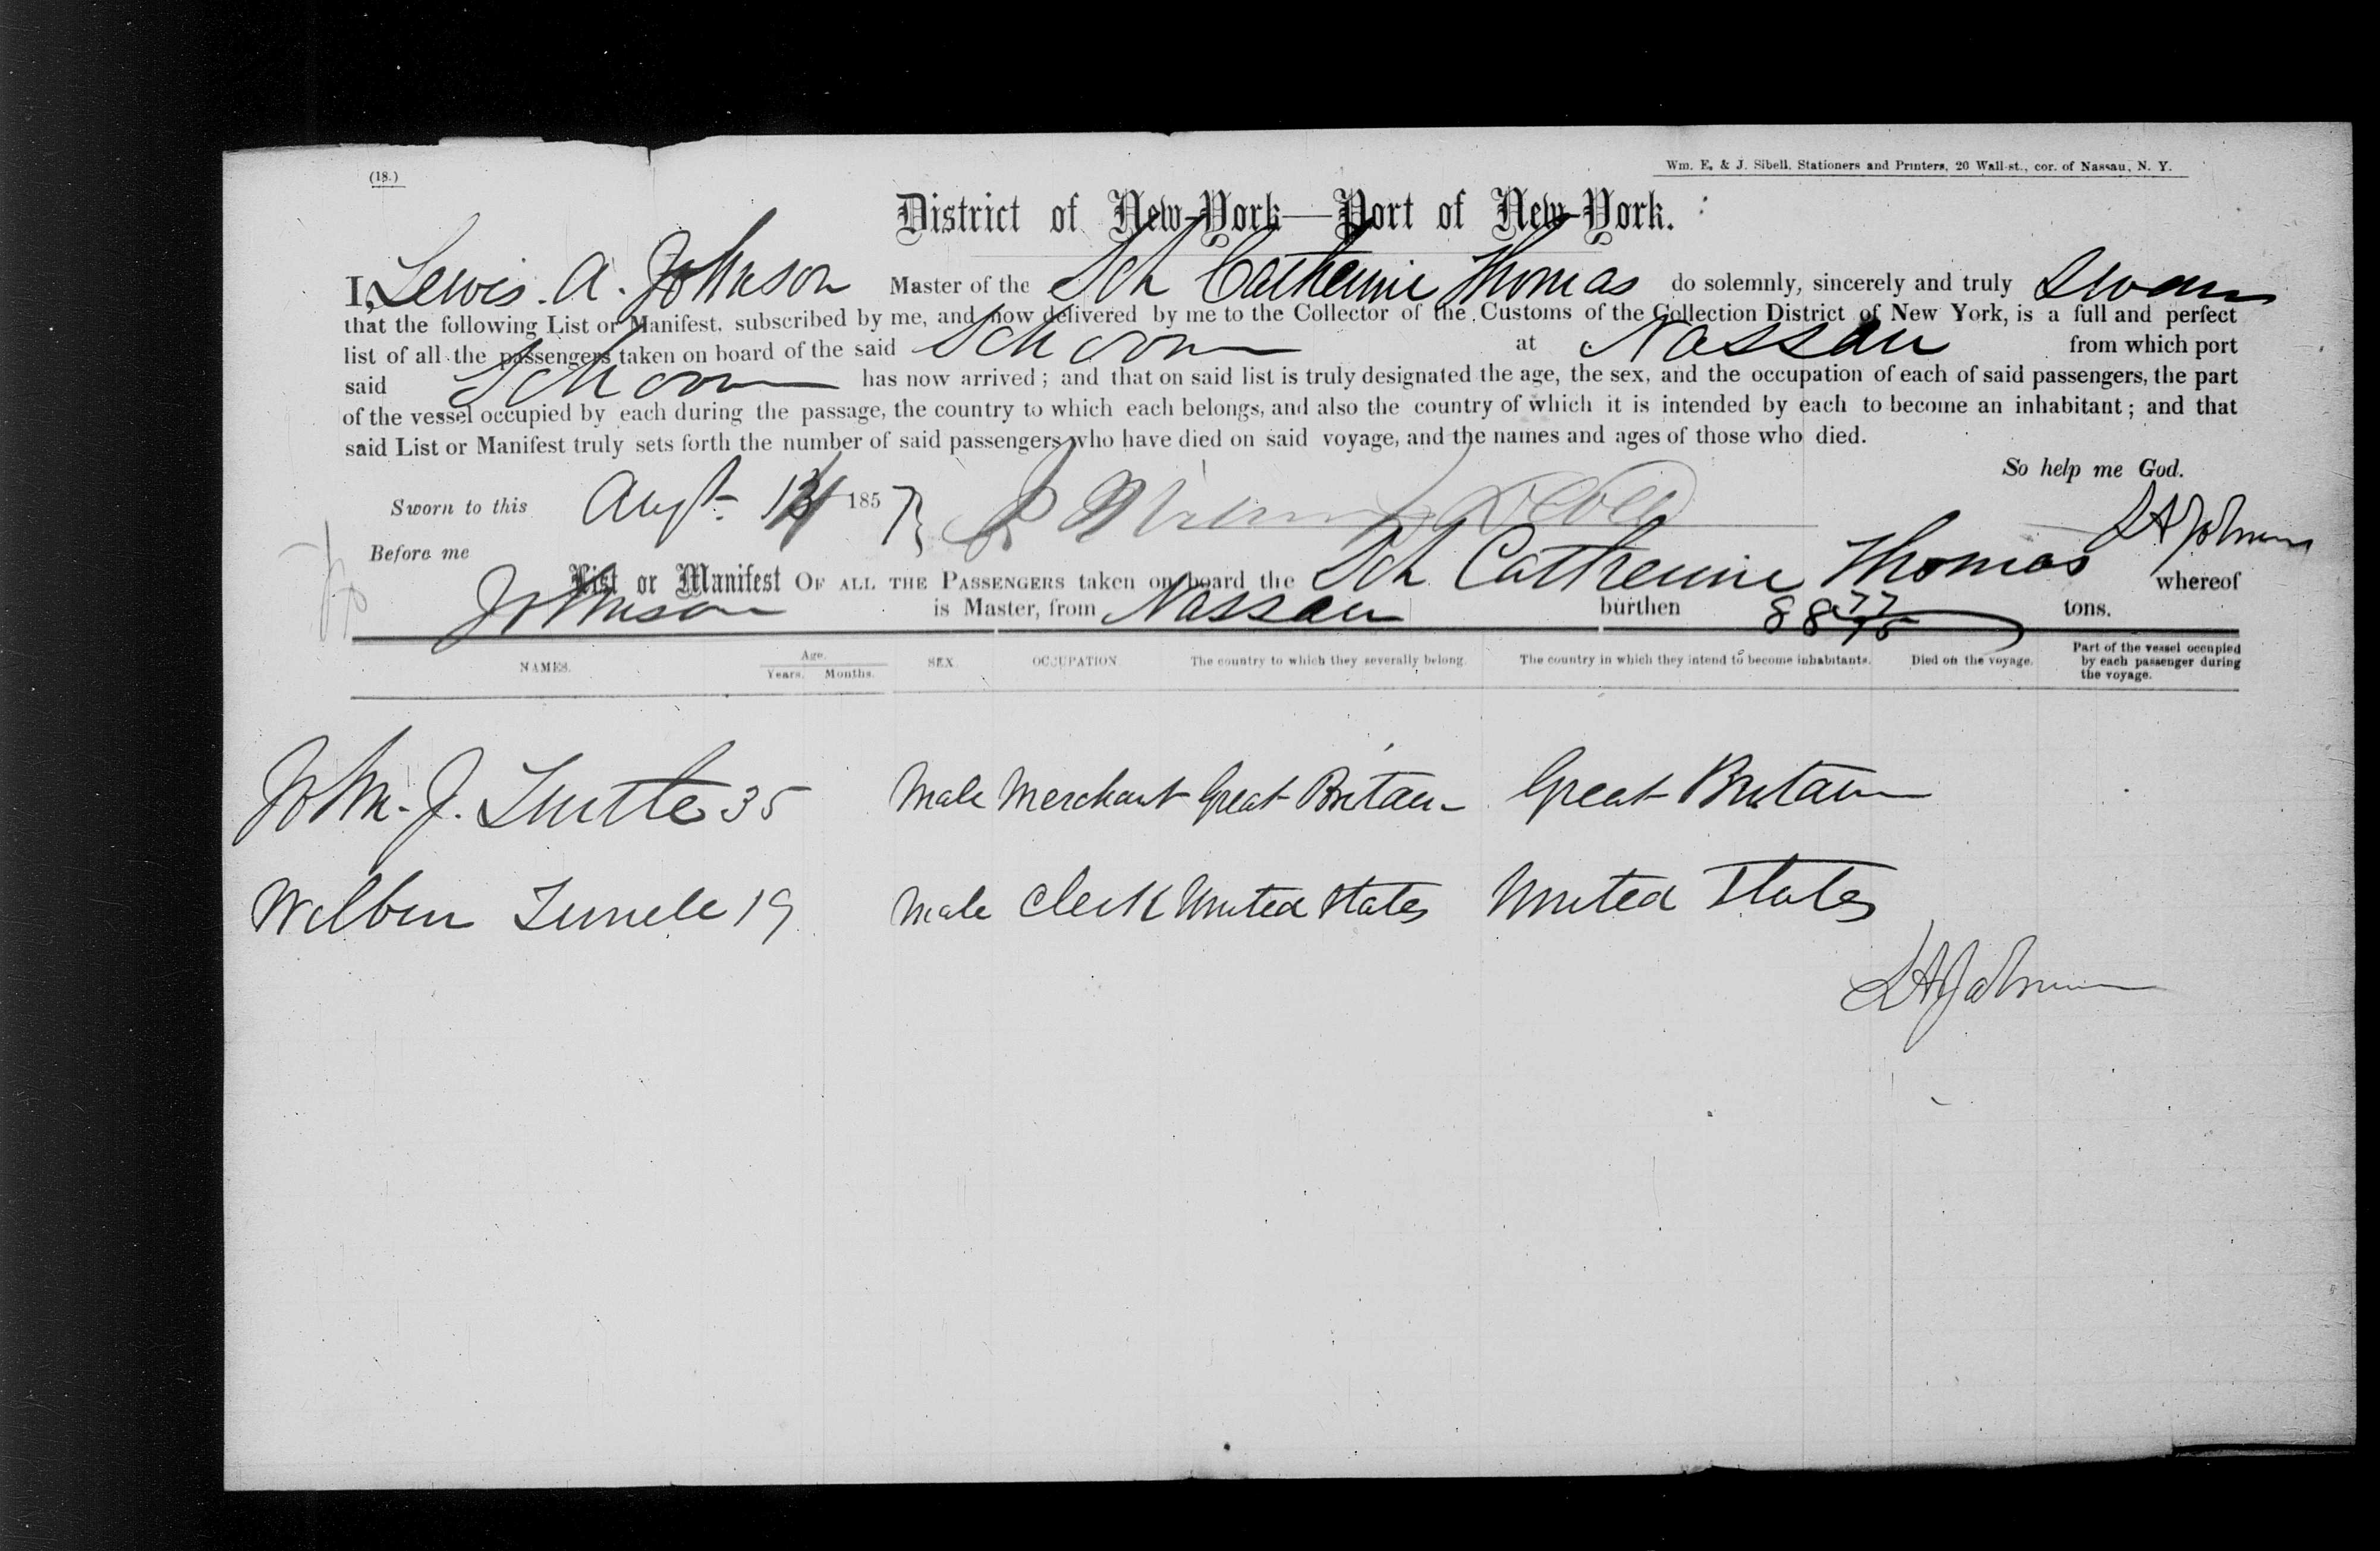 (18.)
Wm. E. & J. Sibell, Stationers and Printers, 20 Wall-st., cor. of Nassau, N. Y.
District of New-York—Port of New-York.
I, Lewis. A. Johnson Master of the Sch Catherine Thomas do solemnly, sincerely and truly Swear
that the following List or Manifest, subscribed by me, and now delivered by me to the Collector of the Customs of the Collection District of New York, is a full and perfect
list of all the passengers taken on board of the said Schoon at Nassau from which port
said Schoon has now arrived; and that on said list is truly designated the age, the sex, and the occupation of each of said passengers, the part
of the vessel occupied by each during the passage, the country to which each belongs, and also the country of which it is intended by each to become an inhabitant; and that
said List or Manifest truly sets forth the number of said passengers who have died on said voyage, and the names and ages of those who died.
So help me God.
Sworn to this Augt. 1857 L A Johnson
Before me
List or Manifest OF ALL THE PASSENGERS taken on board the Sch Catherine Thomas whereof
Johnson is Master, from Nassau burthen 88 77/95 tons.
NAMES. Age. Years. Months. SEX. OCCUPATION. The country to which they severally belong. The country in which they intend to become inhabitants. Died on the voyage. Part of the vessel occupied by each passenger during the voyage.
John. J. 35 Male Merchant Great Britain Great Britain
19 Male Clerk United States United States
L A Johnson